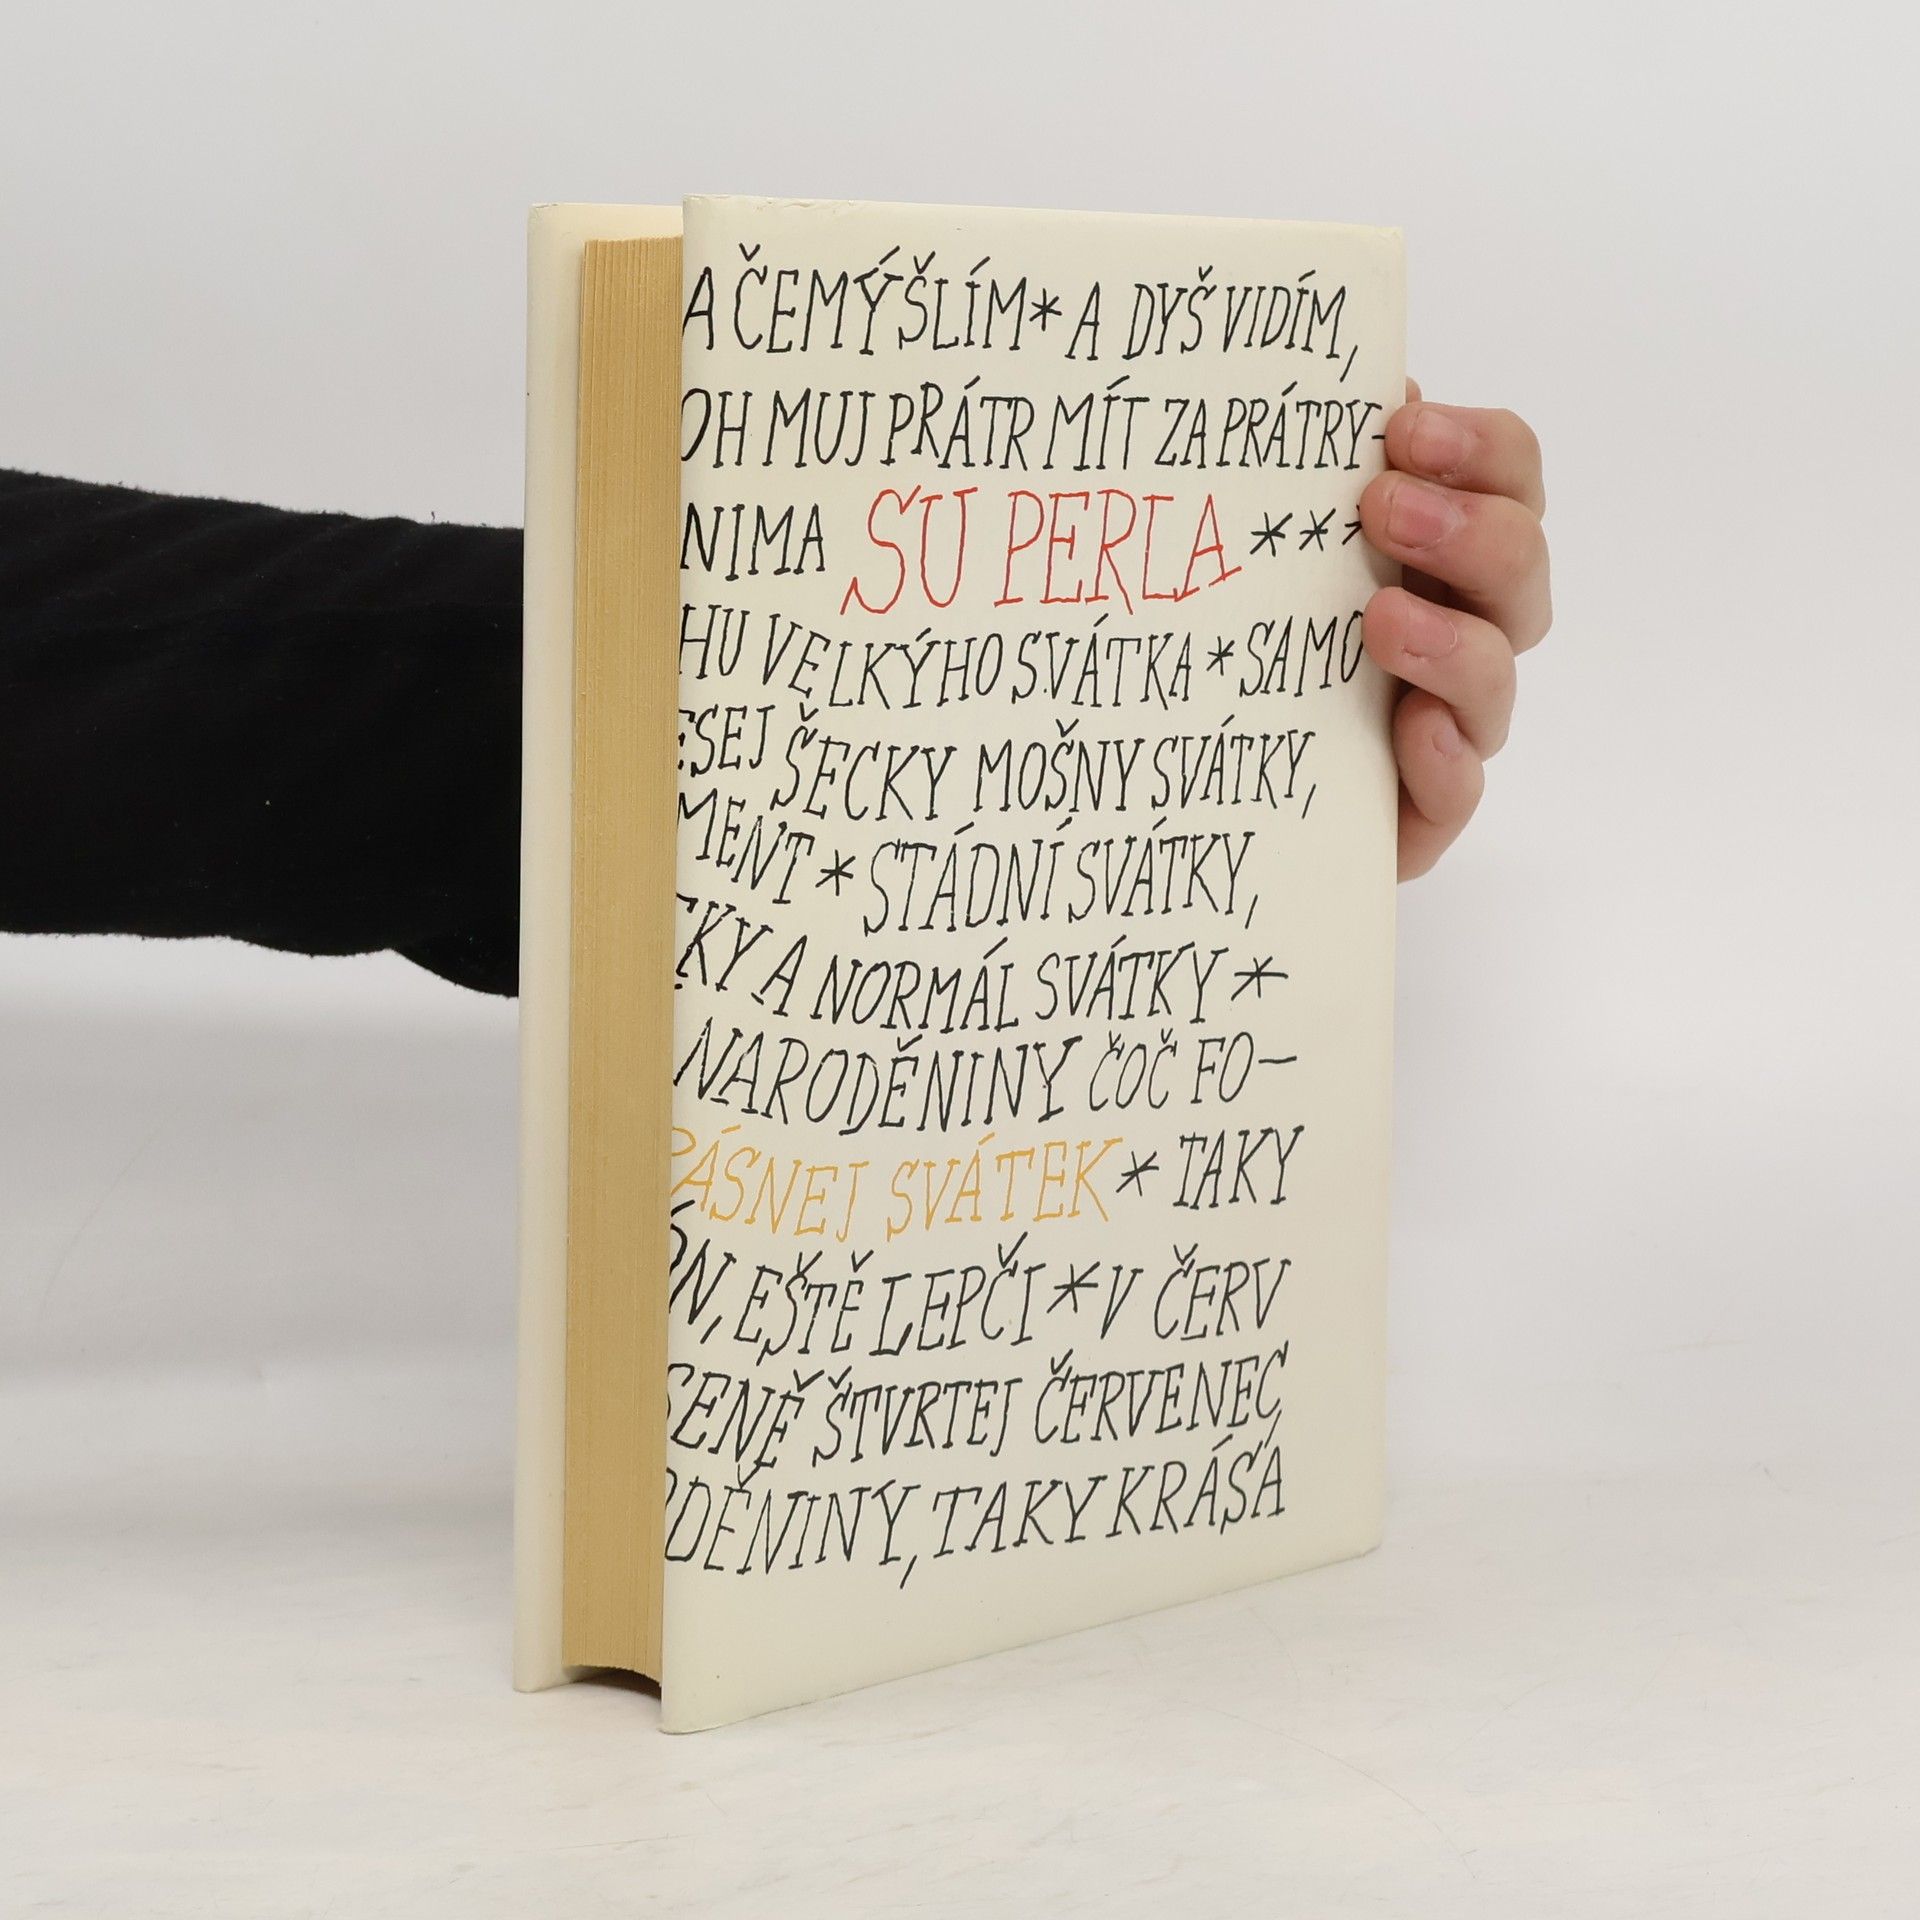 A ČEMÝŠLÍM * A DYŠ VIDÍM,
OH MUJ PRÁTR MÍT ZA PRÁTRY-
NIMA SU PERLA ***
HU VELKÝHO SVÁTKA * SAMO
ESEJ ŠECKY MOŠNY SVÁTKY,
MENT * STÁDNÍ SVÁTKY,
KY A NORMÁL SVÁTKY *
NARODĚNINY ČOČ FO-
ÁSNEJ SVÁTEK * TAKY
N, EŠTĚ LEPČI * V ČERV
SENĚ ŠTVRTEJ ČERVENEC,
DĚNINY, TAKY KRÁSA